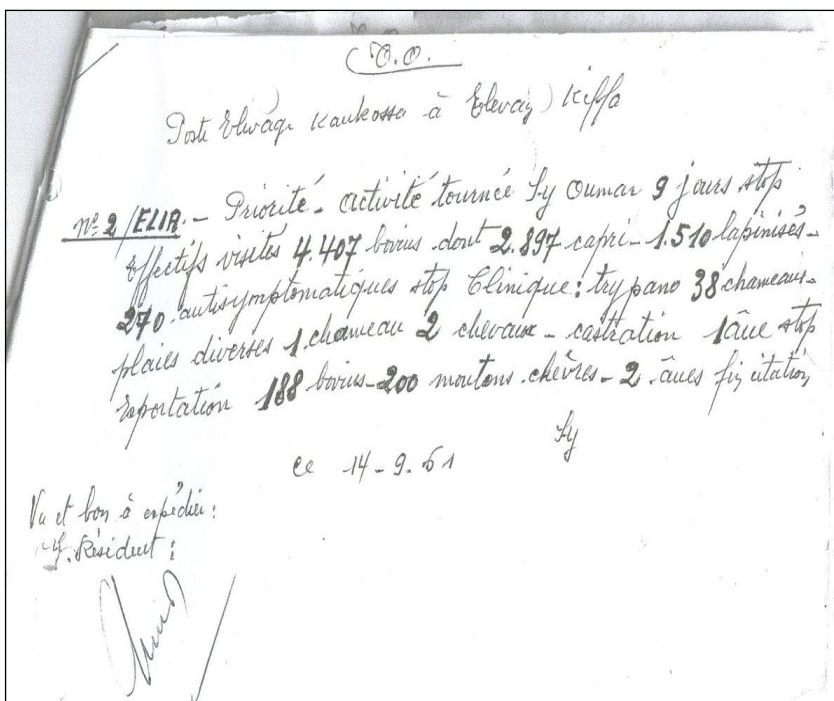 T.O.
Poste Elevage Kankossa à Elevage Kiffa
N° 2/ELIA. - Priorité - activité tournée Sy Oumar 9 jours stop
Effectifs visités 4.407 bovins dont 2.897 capri - 1.510 lapinisés -
270 antisymptomatiques stop Clinique : trypano 38 chameaux -
plaies diverses 1 chameau 2 chevaux - castration 1 âne stop
Exportation 188 bovins - 200 moutons chèvres - 2 ânes fin citation
Sy
ce 14 - 9 - 61
Vu et bon à expédier :
Résident :